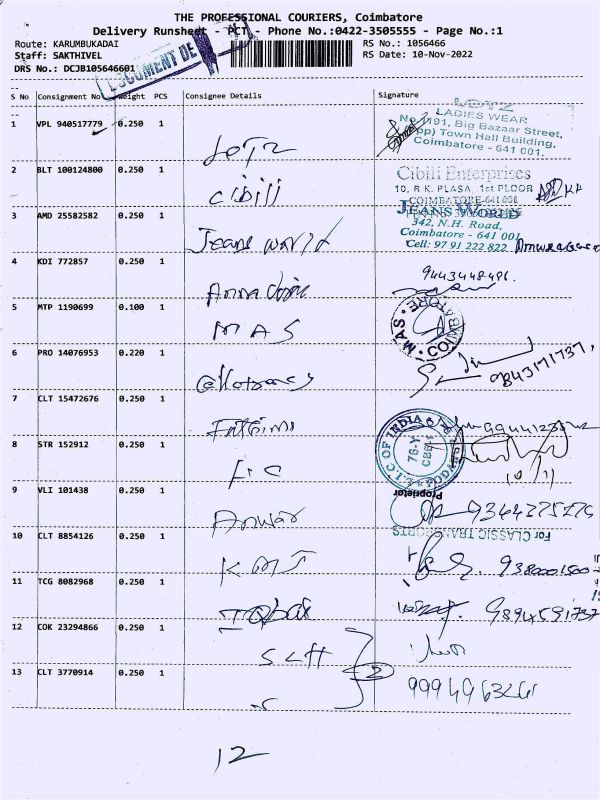 THE PROFESSIONAL COURIERS, Coimbatore
Delivery Runsheet - PCT - Phone No.:0422-3505555 - Page No.:1
Route: KARUMBUKADAI
RS No.: 1056466
Staff: SAKTHIVEL
RS Date: 10-Nov-2022
DRS No.: DCJB105646601
DOCUMENT DE
S No Consignment No Weight PCS Consignee Details Signature
1 VPL 940517779 0.250 1 LOTZ
LOTZ
LADIES WEAR
No. 191, Big Bazaar Street,
(Opp) Town Hall Building,
Coimbatore - 641 001.
2 BLT 100124800 0.250 1 cibili
Cibili Enterprises
10, R.K. PLASA, 1st FLOOR
COIMBATORE-641 001
3 AMD 25582582 0.250 1 Jeans world
JEANS WORLD
342, N.H. Road,
Coimbatore - 641 001
Cell: 97 91 222 822
4 KDI 772857 0.250 1 Anna
5 MTP 1190699 0.100 1 MAS
M.A.S. COIMBATORE
6 PRO 14076953 0.220 1
9843171737,
7 CLT 15472676 0.250 1
8 STR 152912 0.250 1 LIC
L.I.C OF INDIA
76-Y
CBE-1
10/11
9 VLI 101438 0.250 1 Anwar
Proprietor
For CLASSIC TRANSPORTS
10 CLT 8854126 0.250 1
11 TCG 8082968 0.250 1 Iqbal
9894591737
12 COK 23294866 0.250 1 Self
2
13 CLT 3770914 0.250 1
12